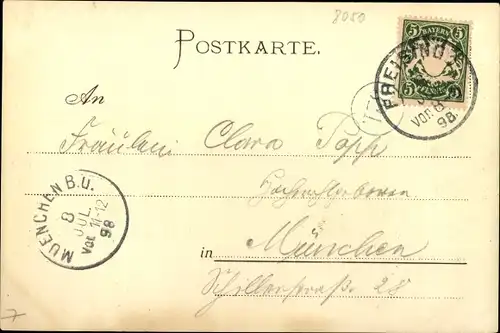 8050
POSTKARTE.
5 BAYERN 5
5 PFENNIG 5
FREISING
JUL
Vor. 8
98
An
Fräulein Clara Popp
in München
Schillerstraße 28
MUENCHEN B.U.
8
JUL.
Vor. 11-12
98